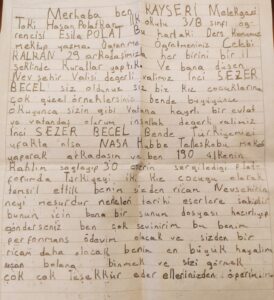 Merhaba ben KAYSERİ Melekgazi
Toki Hasan Polatkan İlk okulu 3/B sınıfı öğ-
rencisi Esila POLAT Bu Hafta ki Ders Konumuz
mektup yazma. Öğretmenimiz Çelebi
KALKAN 29 arkadaşımızda her birin bir il
şeklinde Kuralar yaptık. ve bana düşen
Nevşehir Valisi değerli valimiz İnci SEZER
BECEL siz oldunuz siz biz kız çocuklarına
çok güzel örneklersiniz bende büyüyünce
okuyunca sizin gibi Vatana hayırlı bir evlat
ve vatandaş olurum inşallah değerli valimiz
İnci SEZER BECEL Bende Türkiyemizi
ufakta olsa NASA Habbe Teleskobu maketi
yaparak arkadaşım ve ben 190 ülkenin
katılım sağlayıp 30 sergilediği plat-
formda Türkiyeyi Kız çocuğu olarak
temsil ettik benim sizden ricam Nevşehirin
neyi meşhurdur nedeleri tarihi eserlere sahiptir
bunun için bana bir sunum dosyası hazırlayıp
gönderseniz ben çok sevinirim bu benim
performans ödevim olacak ve sizden bir
ricam daha olacak benim en büyük hayalim
uçan balona binmek ve sizi görmek
çok çok teşekkür eder ellerinizden öperim